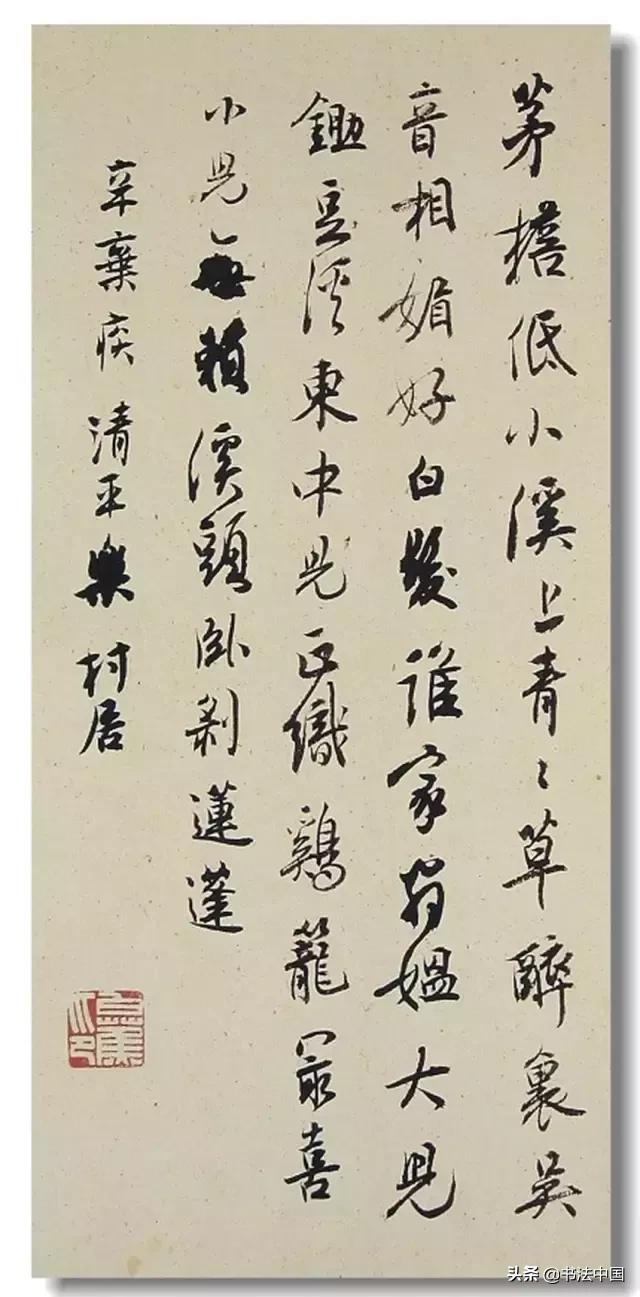 茅檐低小溪上青〻草醉裏吴
音相媚好白髮誰家翁媪大兒
鋤豆溪東中兒正織鷄籠最喜
小兒無賴溪頭卧剥蓮蓬
辛棄疾清平樂村居
头条 @书法中国